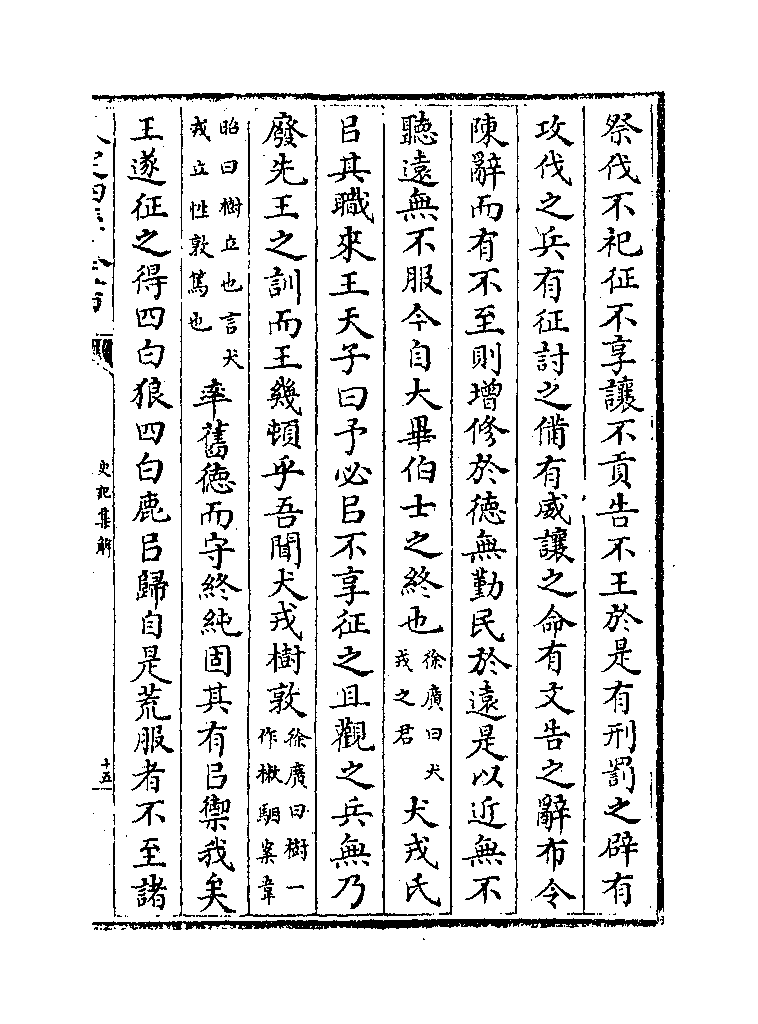 祭伐不祀征不享讓不貢告不王於是有刑罰之辟有
攻伐之兵有征討之備有威讓之命有文告之辭布令
陳辭而有不至則增修於徳無勤民於遠是以近無不
聽遠無不服今自大畢伯士之終也徐廣曰犬戎之君犬戎氏
㠯其職來王天子曰予必㠯不享征之且觀之兵無乃
廢先王之訓而王幾頓乎吾聞犬戎樹敦徐廣曰樹一作樕駰案韋
昭曰樹立也言犬戎立性敦篤也率舊徳而守終純固其有㠯禦我矣
王遂征之得四白狼四白鹿㠯歸自是荒服者不至諸
史記集解
十五